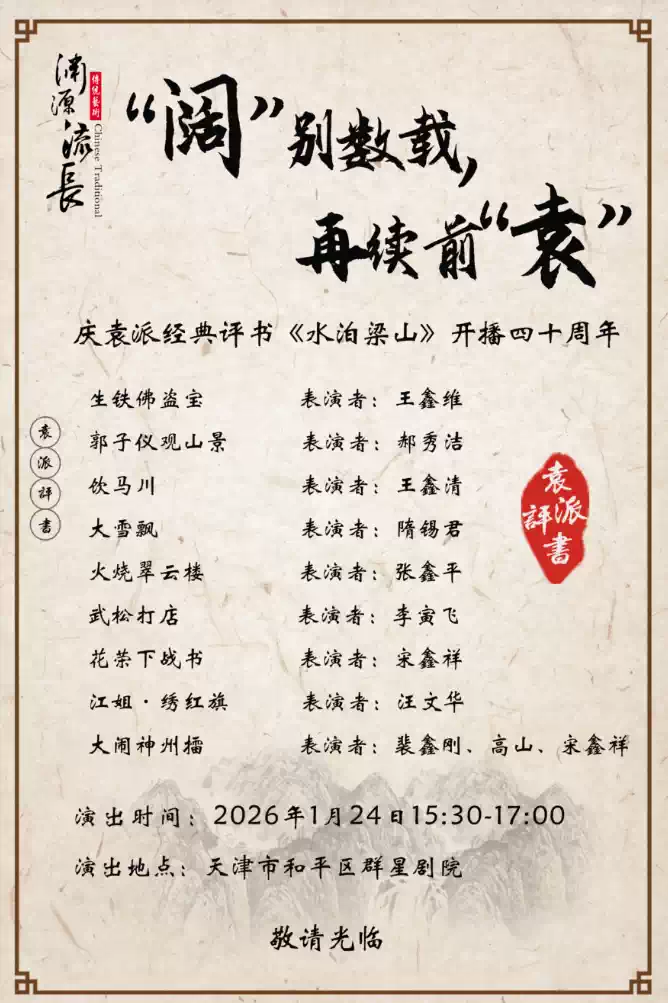 渊源流長
傳統藝術
Chinese Traditional
“阔”别数载，
再续前“袁”
庆袁派经典评书《水泊梁山》开播四十周年
生铁佛盗宝 表演者：王鑫维
郭子仪观山景 表演者：郝秀洁
饮马川 表演者：王鑫清
大雪飘 表演者：隋锡君
火烧翠云楼 表演者：张鑫平
武松打店 表演者：李寅飞
花荣下战书 表演者：宋鑫祥
江姐·绣红旗 表演者：汪文华
大闹神州擂 表演者：裴鑫刚、高山、宋鑫祥
袁派評書
袁派評書
演出时间：2026年1月24日15:30-17:00
演出地点：天津市和平区群星剧院
敬请光临